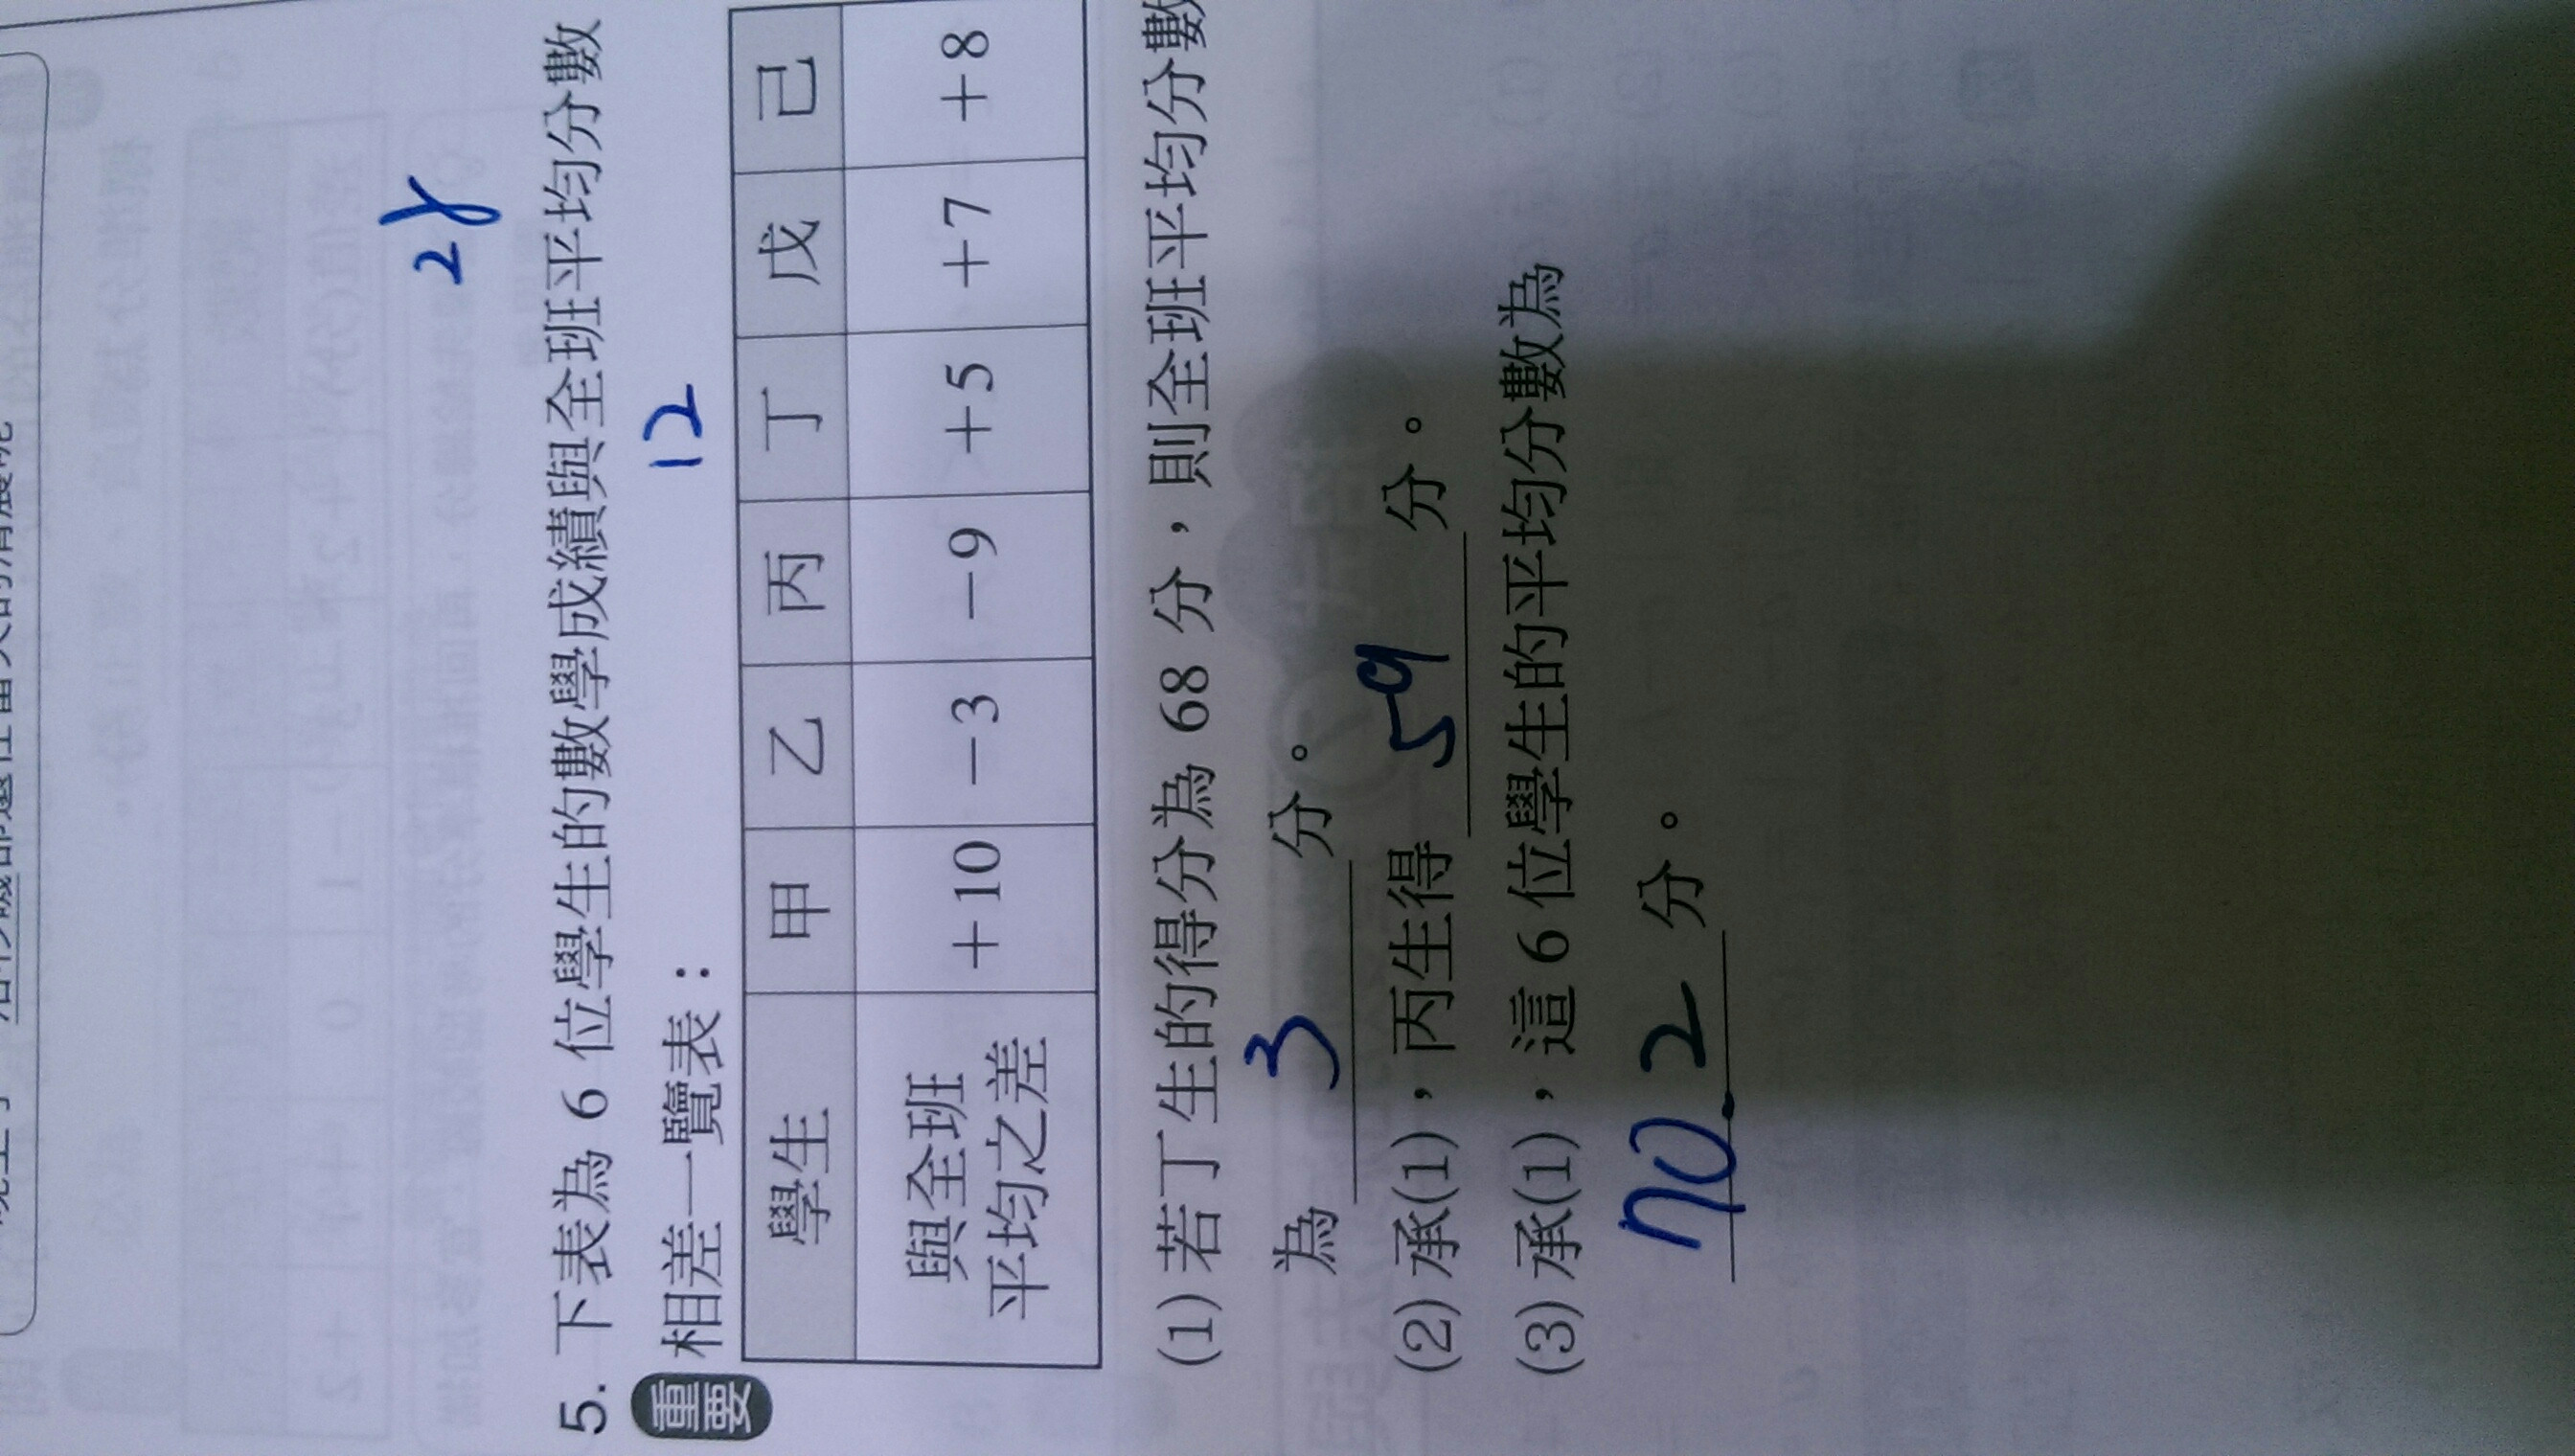 28
5. 下表為 6 位學生的數學成績與全班平均分數
重要 相差一覽表： 12
學生 甲 乙 丙 丁 戊 己
與全班
平均之差 +10 −3 −9 +5 +7 +8
(1) 若丁生的得分為 68 分，則全班平均分數
為 3 分。
(2) 承(1)，丙生得 59 分。
(3) 承(1)，這 6 位學生的平均分數為
70.2 分。